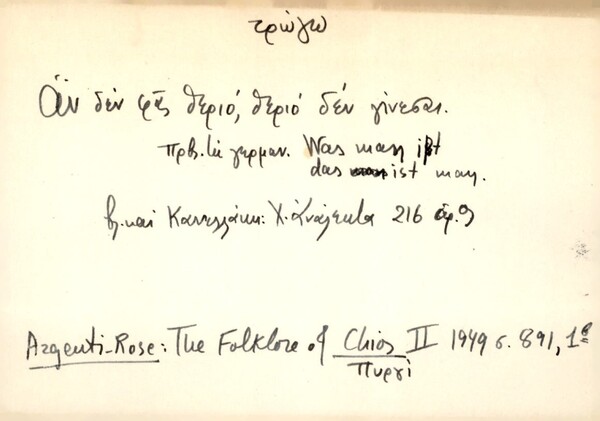 τρώγω
Ἂν δέν φᾶς θεριό, θεριό δέν γίνεσαι.
πρβ. τὸ γερμαν. Was man ißt
das ist man.
βλ. και Κανελλάκη: Χ. Ἀνάλεκτα 216 ἀρ. 9
Argenti-Rose: The Folklore of Chios II 1949 σ. 891, 1
Πυργί